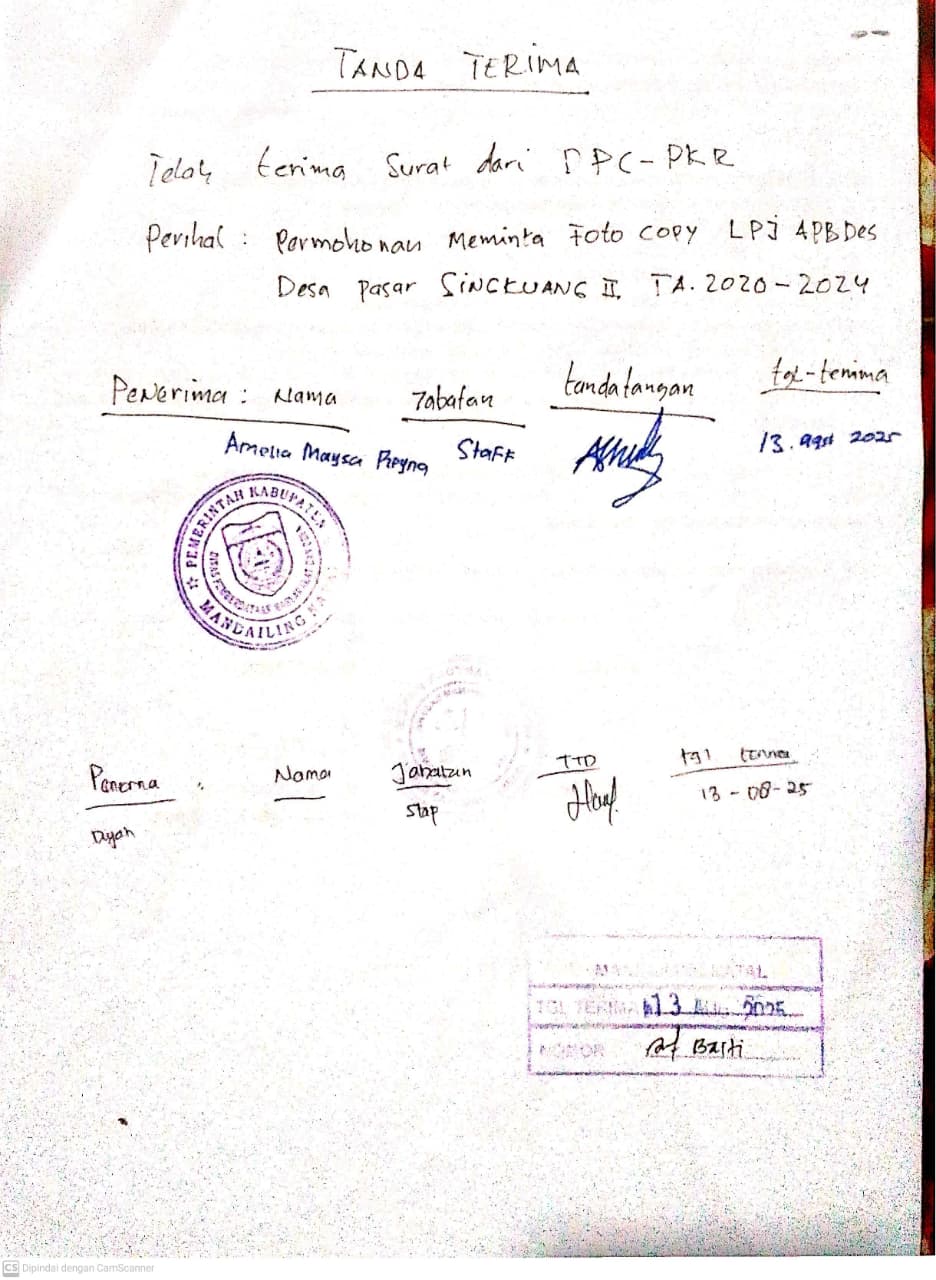 TANDA TERIMA
Telah terima Surat dari DPC-PKR
Perihal : Permohonan Meminta Foto Copy LPJ APBDes
Desa Pasar SINGKUANG II, TA. 2020-2024
Penerima : Nama Jabatan tandatangan tgl-terima
Amelia Maysa Staff 13. Agst 2025
☆ PEMERINTAH KABUPATEN
MANDAILING
Penerima : Nama Jabatan TTD tgl terima
Diyah Stap 13-08-25
MANDAILING NATAL
TGL TERIMA 13 AUG 2025
NOMOR
CS Dipindai dengan CamScanner